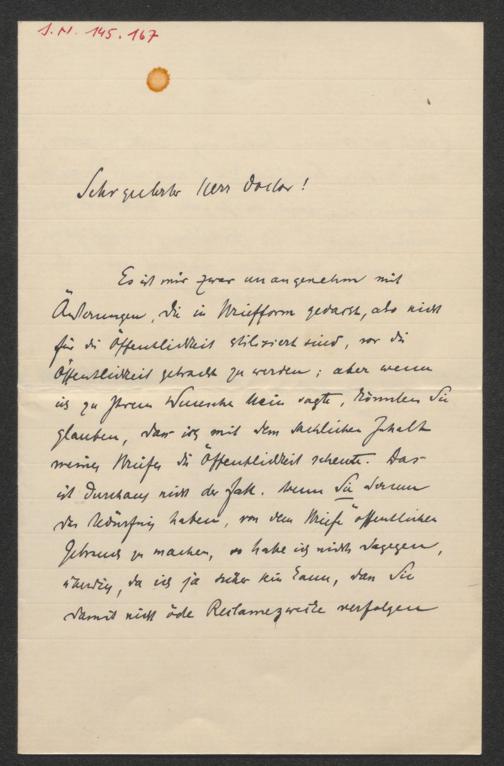 J.N. 145.167
Sehr geehrter Herr Doctor!
Es ist mir zwar unangenehm mit
Äußerungen, die in Briefform gedacht, also nicht
für die Öffentlichkeit stilisiert sind, vor die
Öffentlichkeit gebracht zu werden; aber wenn
ich zu Ihrem Wunsche Nein sagte, könnten Sie
glauben, dass ich mit dem sachlichen Inhalt
meines Briefes die Öffentlichkeit scheute. Das
ist durchaus nicht der Fall. Wenn Sie darum
das Bedürfnis haben, von dem Briefe öffentlichen
Gebrauch zu machen, so habe ich nichts dagegen,
da ich ja sicher sein kann, dass Sie
damit nicht öde Reclamezwecke verfolgen